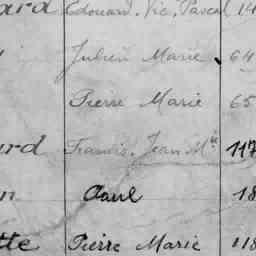 ard Edouard. Vic. Pascal 14
Julien Marie 64
Pierre Marie 65
ard Francis. Jean M. 117
n Paul 18
tte Pierre Marie 118